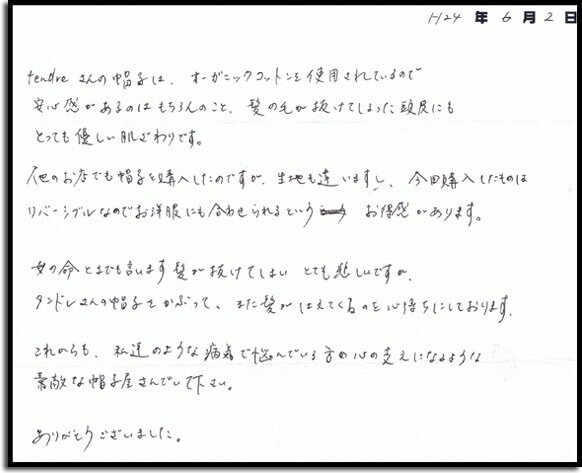 H24 年 6 月 2 日
tendreさんの帽子は、オーガニックコットンを使用されているので
安心感があるのはもちろんのこと、髪の毛が抜けてしまった頭皮にも
とっても優しい肌ざわりです。
他のお店でも帽子を購入したのですが、生地も違いますし、今回購入したものは
リバーシブルなのでお洋服にも合わせられるという お得感があります。
女の命とまでも言います髪が抜けてしまい とても悲しいですが、
タンドレさんの帽子をかぶって、また髪がはえてくるのを心待ちにしております。
これからも、私達のような病気で悩んでいる方の心の支えになるような
素敵な帽子屋さんでいて下さい。
ありがとうございました。